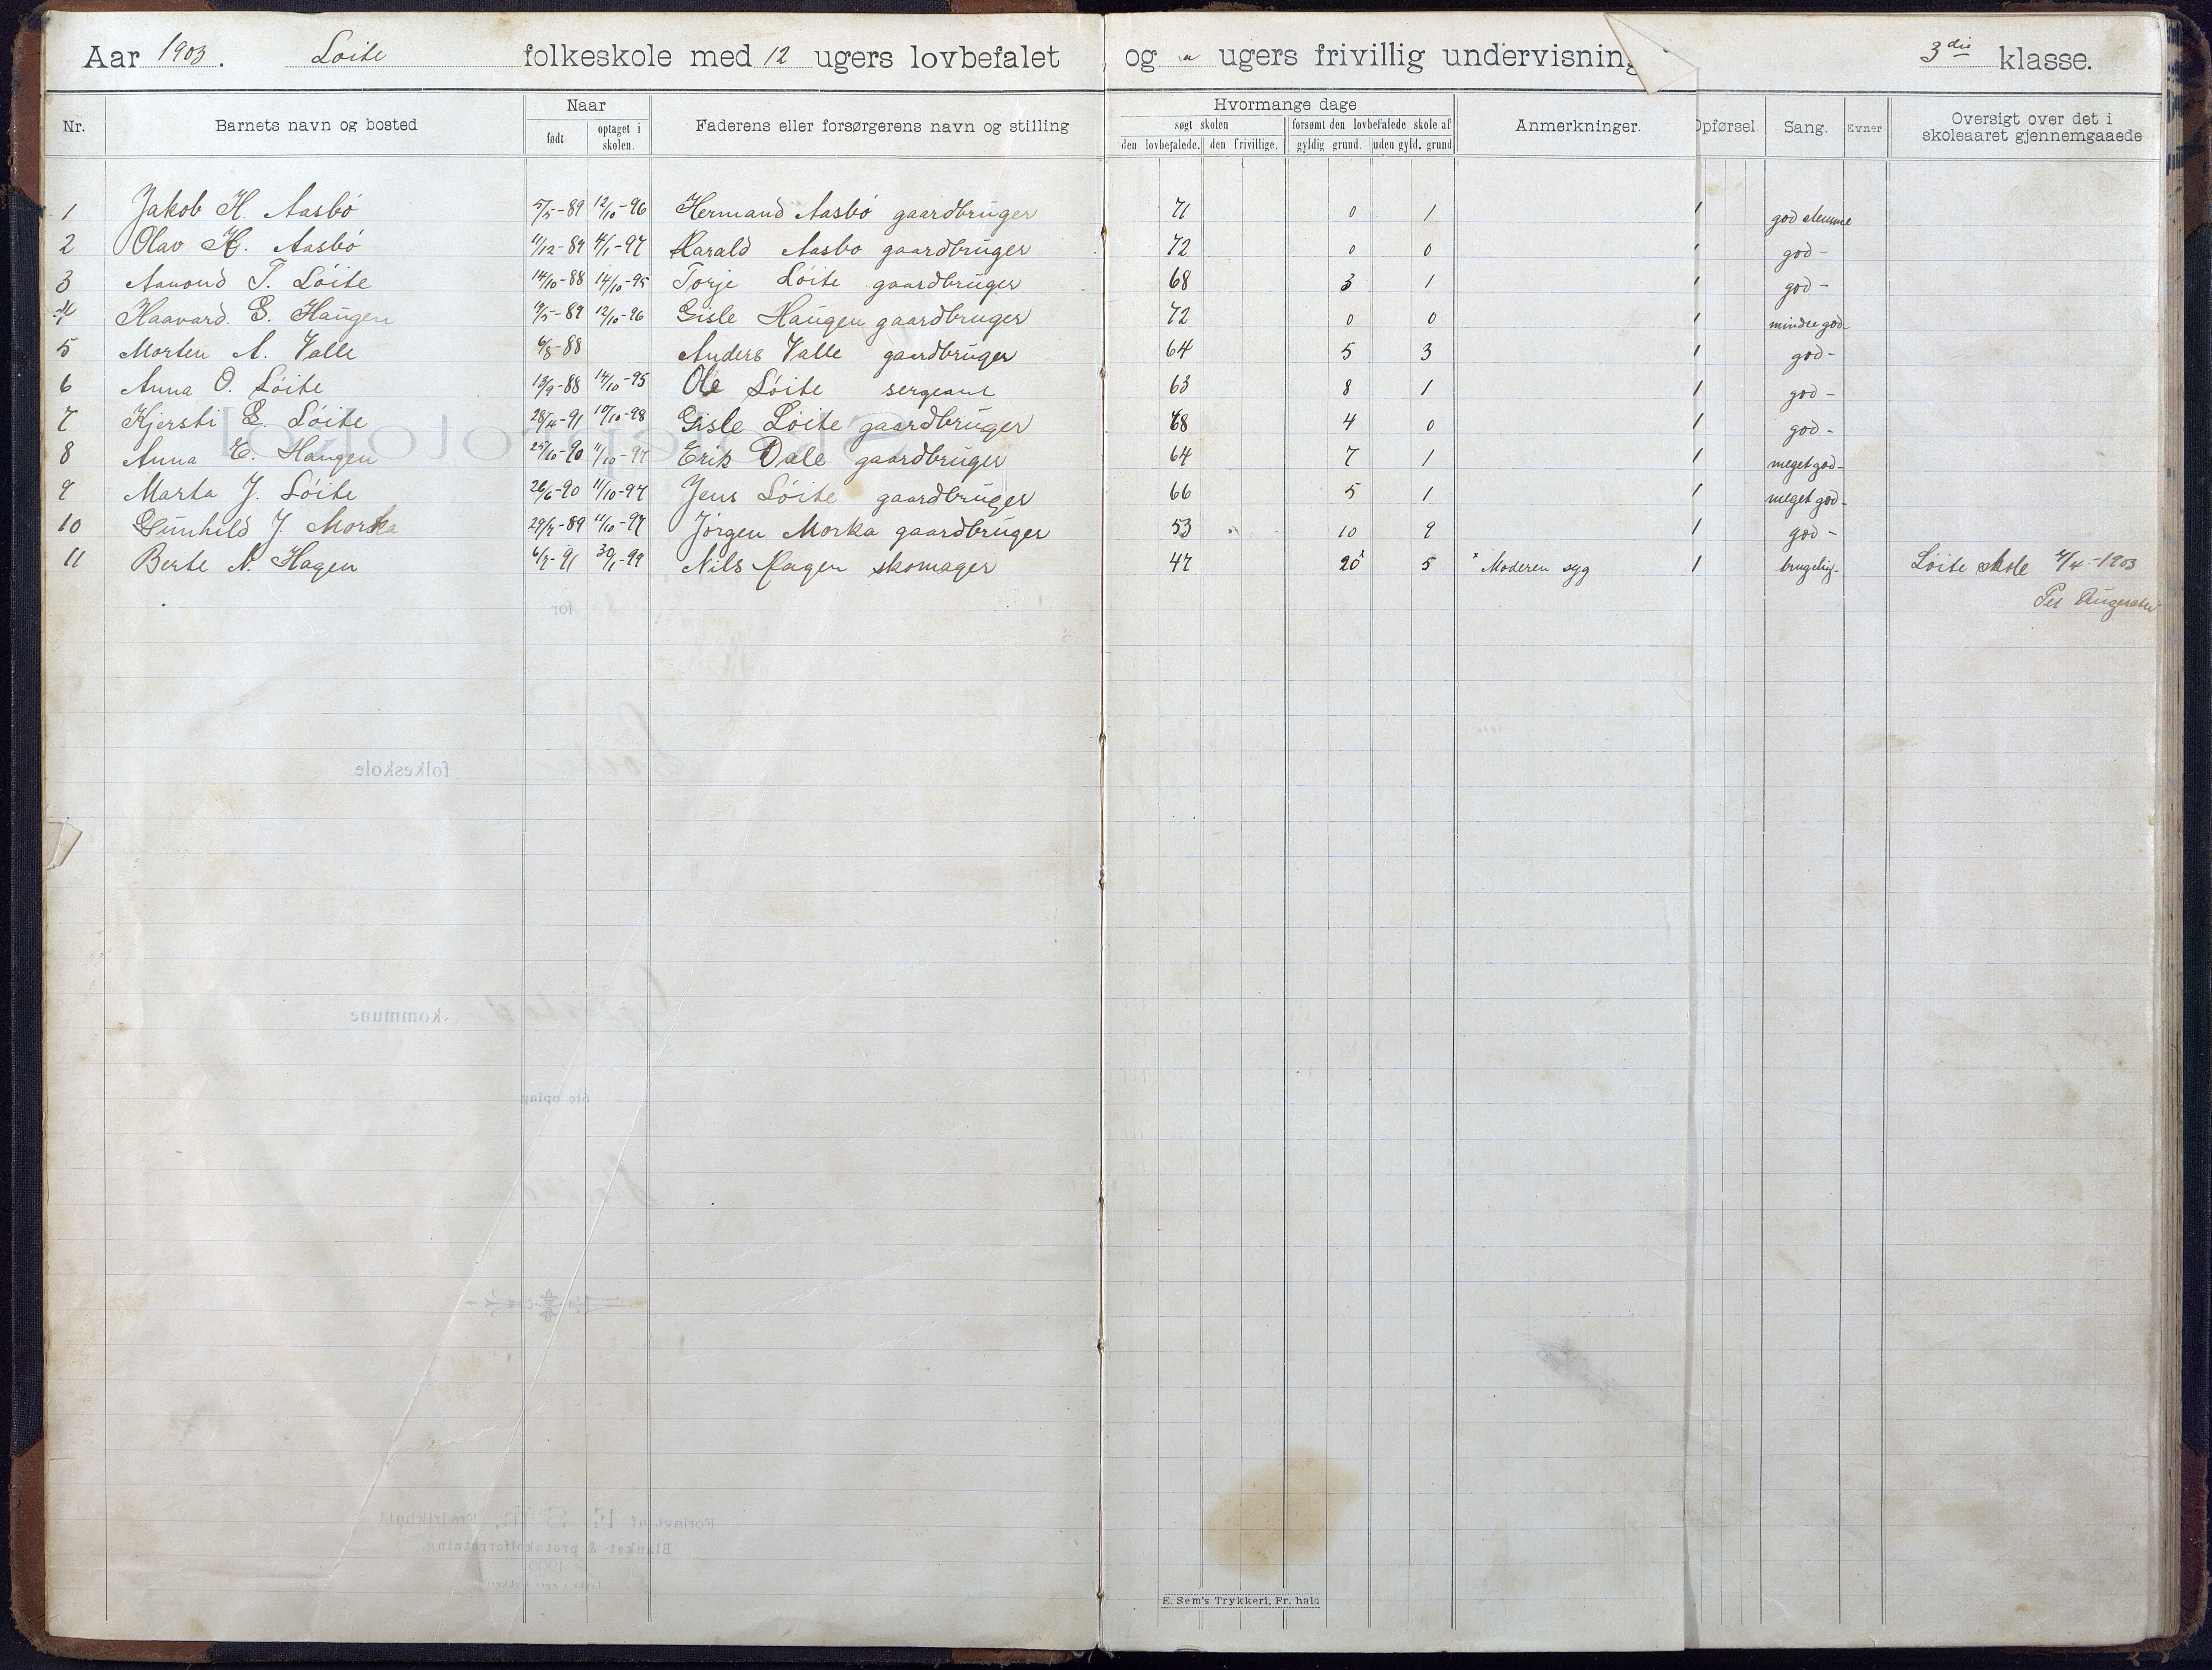 Aar 1903. Løite folkeskole med 12 ugers lovbefalet og " ugers frivillig undervisning 3die klasse.
Nr. Barnets navn og bosted Naar født optaget i skolen. Faderens eller forsørgerens navn og stilling Hvormange dage søgt skolen den lovbefalede. den frivillige. forsømt den lovbefalede skole af gyldig grund. uden gyld. grund Anmerkninger. Opførsel Sang. Evner Oversigt over det i skoleaaret gjennemgaaede
1 Jakob H. Aasbø 5/5-89 12/10-96 Hermand Aasbø gaardbruger 71 0 1 1 god stemme
2 Olav H. Aasbø 11/12-89 4/1-97 Harald Aasbo gaardbruger 72 0 0 1 god -
3 Aanond T. Løite 14/10-88 14/10-95 Torje Løite gaardbruger 68 3 1 1 god -
4 Haavard. G. Haugen 19/5-89 12/10-96 Gisle Haugen gaardbruger 72 0 0 1 mindre god -
5 Morten A. Valle 6/8-88 Anders Valle gaardbruger 64 5 3 1 god -
6 Anna O. Løite 13/9-88 14/10-95 Ole Løite sergeant 63 8 1 1 god -
7 Kjersti G. Løite 28/4-91 10/10-98 Gisle Løite gaardbruger 68 4 0 1 god -
8 Anna E. Haugen 25/10-90 11/10-97 Erik Dale gaardbruger 64 7 1 1 meget god -
9 Marta J. Løite 26/6-90 11/10-97 Jens Løite gaardbruger 66 5 1 1 meget god -
10 Gunhild J. Morka 29/7-89 11/10-97 Jørgen Morka gaardbruger 53 10 9 1 god -
11 Berte N. Hagen 6/7-91 30/1-99 Nils Hagen skomager 47 20 x 5 x Moderen syg 1 brugelig - Løite skole 4/4-1903
Per
Skoleprotokol
for
folkeskole
kommune
6te oplag
Forlagt af E. Sem, Fredrikhald
Blanket- & protokolforretning.
1900
E. Sem's Trykkeri, Fr. hald